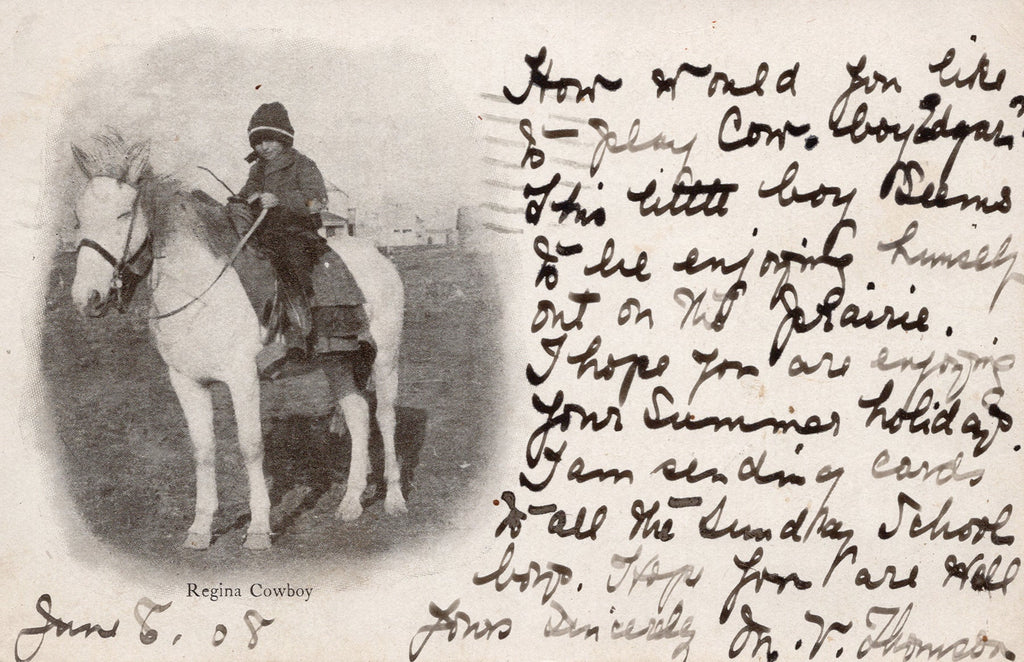 How would you like
to play Cow-boy Edgar?
This little boy Seems
to be enjoying himself
out on the Prairie.
I hope you are enjoying
your Summer holidays.
I am sending cards
to all the Sunday School
boys. Hope you are Well
Yours Sincerely M. V. Thomson.
Regina Cowboy
June 8. 08